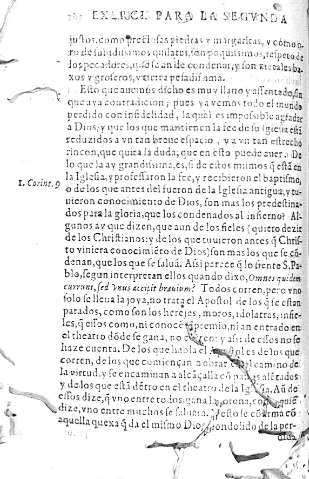 EXERCIC. PARA LA SEGVNDA
justos, como preciosas piedras y margaritas, y cómo q̃
ro de subidissimos quilates, son poquissimos, respeto de
los pecadores, que se an de condenar, y son metales ba-
xos y groseros, y tierra pesadissima.
Esto que auemos dicho es muy llano y assentado, sin
que aya contradicion; pues ya vemos todo el mundo
perdido con infidelidad, la qual es impossible agradar
a Dios, y que los que mantienen la fee de su Iglesia está
reduzidos a vn tan breue espacio, y a vn tan estrecho
rincon, que quita la duda, que en esto puede auer. De
lo que la ay grandissima, es, si de estos mismos q̃ está en
la Iglesia, y professaron la fee, y recibieron el baptismo,
o de los que antes del fueron de la Iglesia antigua, y tu-
uieron conocimiento de Dios, son mas los predestina-
dos para la gloria, que los condenados al infierno? Al-
gunos ay que dizen, que aun de los fieles (quieto dezir
de los Christianos: y de los que tuuieron antes q̃ Chris-
to viniera conocimiẽto de Dios) son mas los que se cõ-
denan, que los que se saluã. Assi parece q̃ lo sente S. Pa-
1. Corint. 9
blo, segun interpretan ellos quando dixo, Omnes quidem
currunt, sed vnus accipit brauium? Todos corren, pero vno
solo se lleua la joya, no trata el Apostol de los q̃ se están
parados, como son los herejes, moros, idolatras, infie-
les, q̃ essos como, ni conocẽ el premio, ni an entrado en
el theatro dõde se gana, no corren: y assi de essos no se
haze cuenta. De los que habla el Apostol es de los que
corren, de los que comiençan a obrar en el camino de
la virtud, y se encaminan a alcãçalla cõ passos alẽtados
y de los que está dẽtro en el theatro de la Iglesia. Aũ de
essos dize, q̃ vno entre todos gana la corona, como quiẽ
dize, vno entre muchos se saluara. Y esto se cõfirma cõ
aquella quexa q̃ da el mismo Dios, condolido de la per-
dida